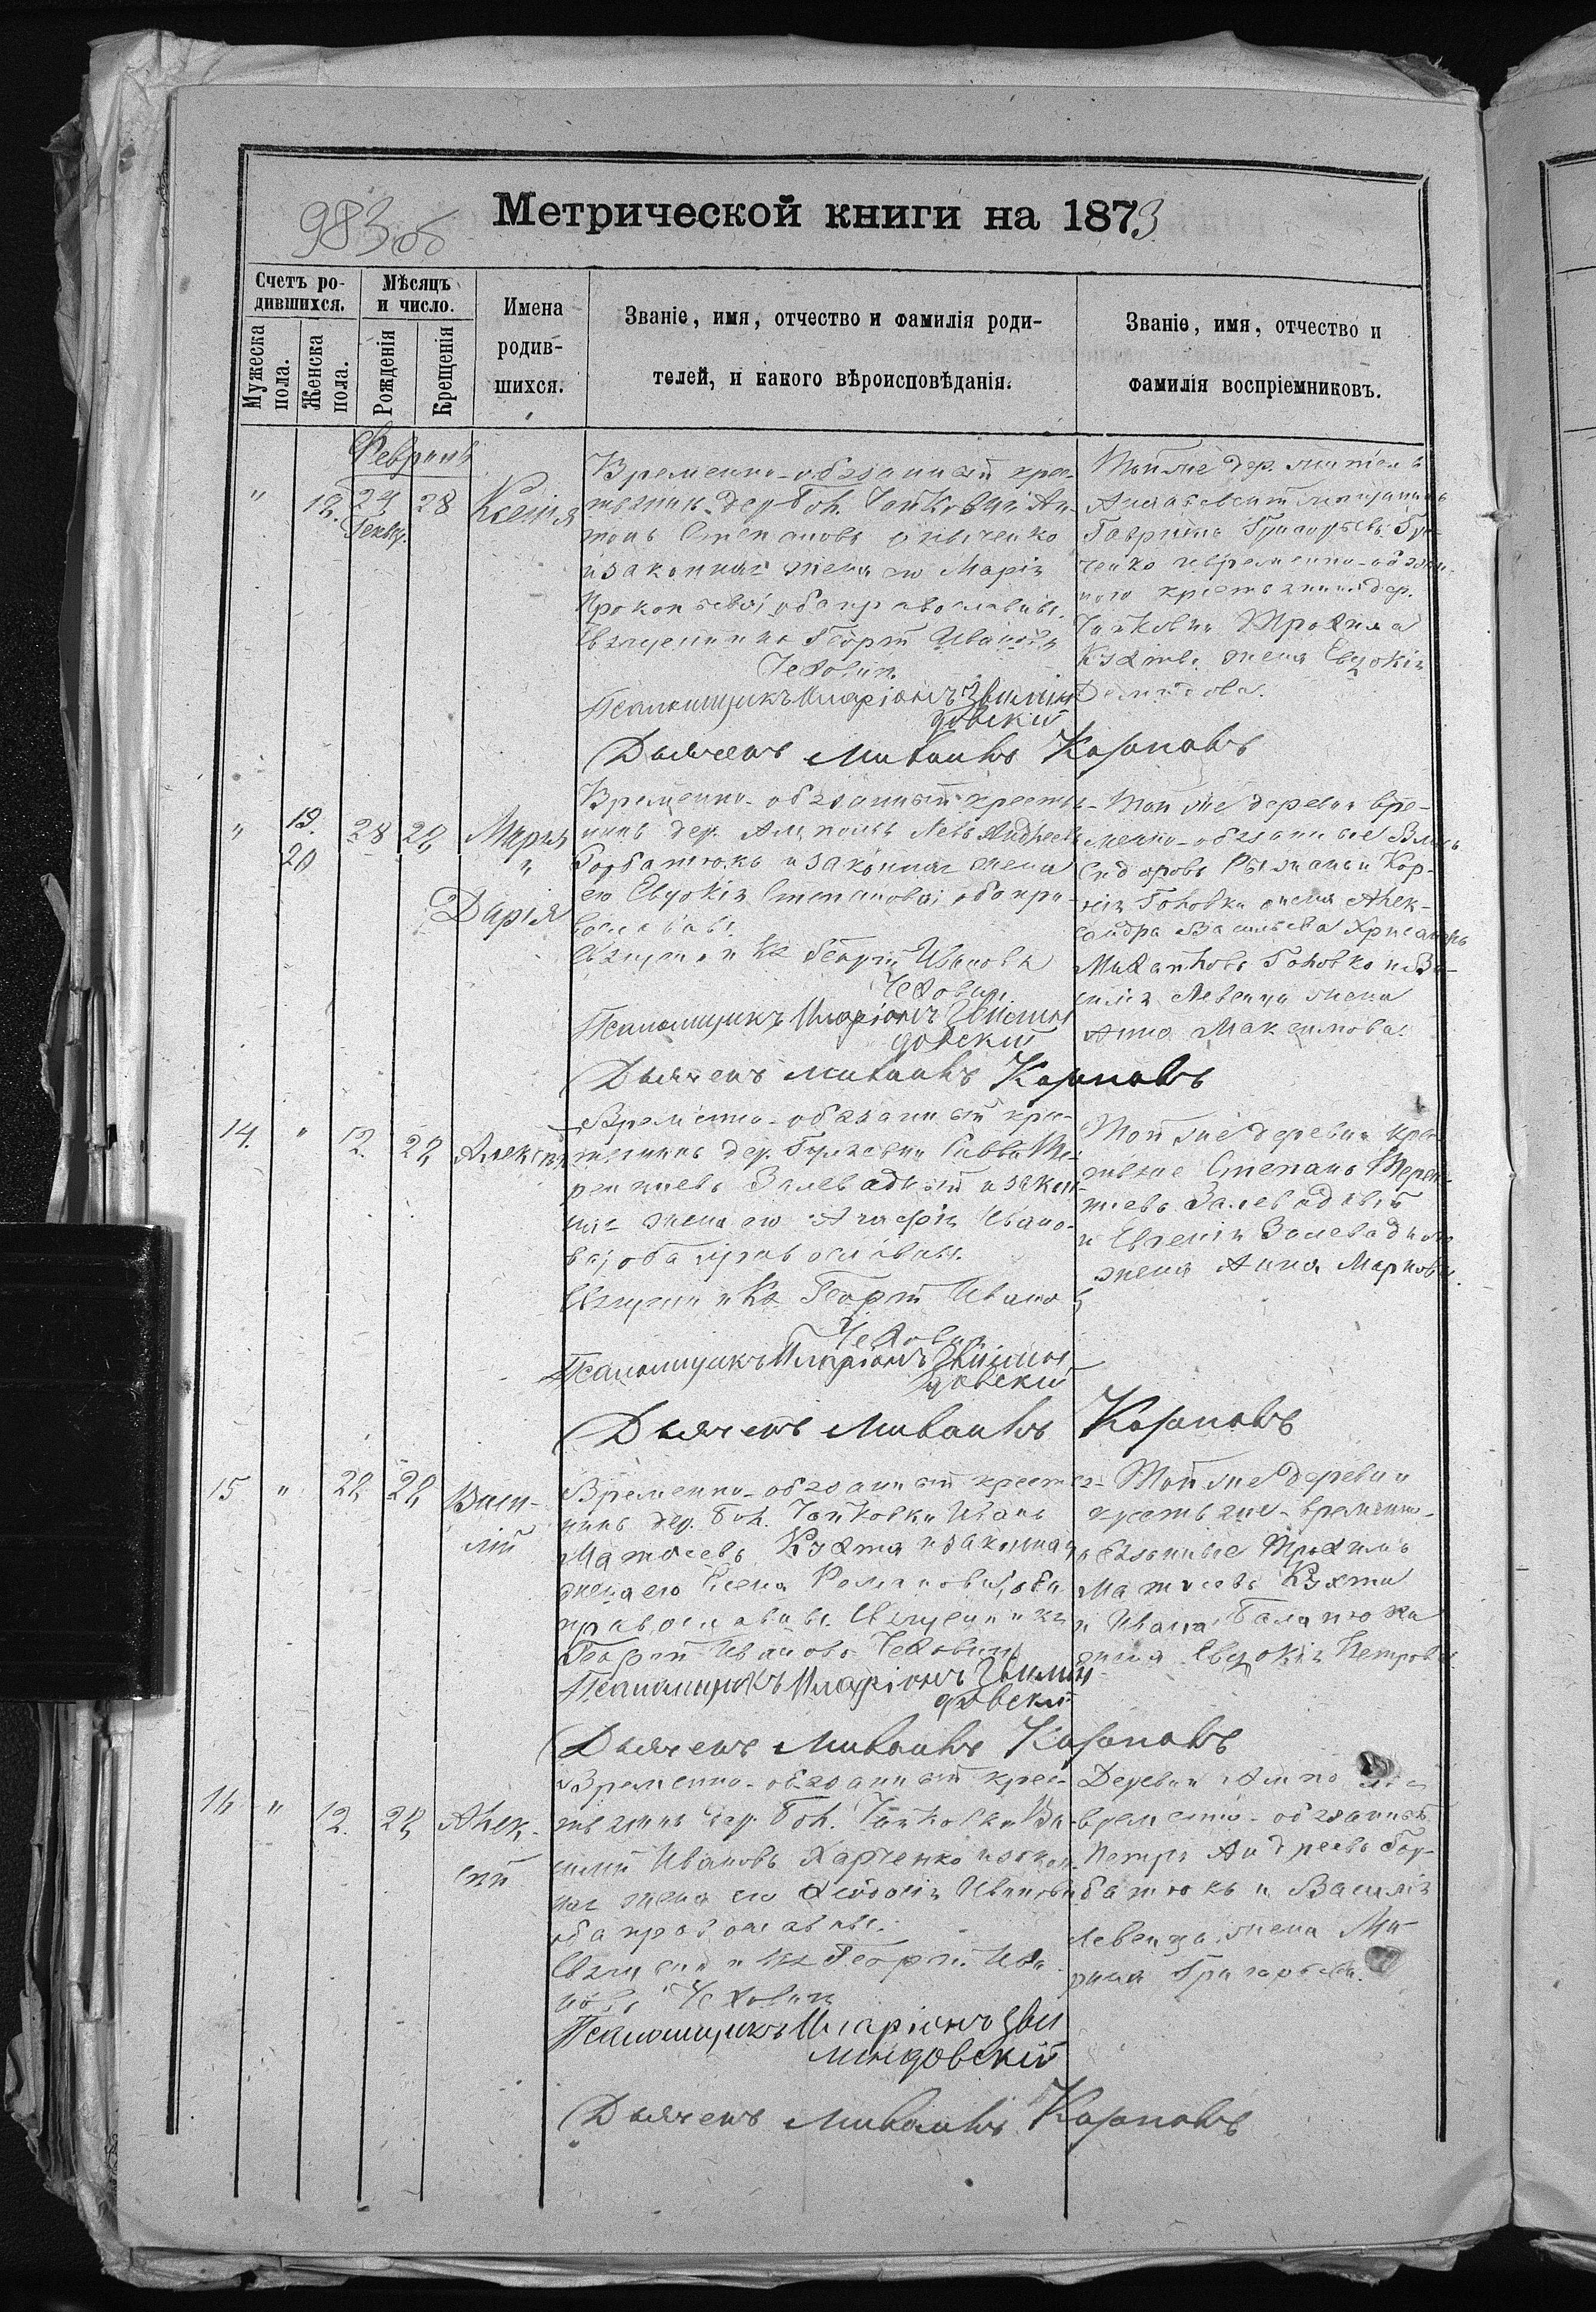 983 об
Метрической книги на 1873
Счетъ ро-
дившихся.
Мѣсяцъ
и число.
Имена
родив-
шихся.
Званіе, имя, отчество и фамилія роди-
телей, и какого вѣроисповѣданія.
Званіе, имя, отчество и
фамилія воспріемниковъ.
Мужеска
пола.
Женска
пола.
Рожденія
Крещенія
Февраль
" 18. 28 Ксенія
Временно-обязанный крес-
тянинъ дер. Бол. Чайковки Ан-
тонъ Степановъ
и законная жена его Марія
Прокопьева; оба православны.
Священникъ Георгій Ивановъ
Чеховичъ
Псаломщикъ Иларіонъ Звилин
довский
Дьячекъ Михаилъ
Той же дер. житель
мѣщанинъ
Гавріилъ Григорьевъ
ченко и временно-обязан-
ного крестьянина дер.
Чайковки Трофима
Кухты жена Евдокія
Демидова.
" 19. 28 28 Марія
20 "
Дарія
Временно-обязанный крестья-
нинъ дер. Левъ Андреевъ
Горбатюкъ и законная жена
его Евдокія Степанова; оба пра-
вославны.
Священникъ Георгій Ивановъ
Чеховичъ
Псаломщикъ Иларіонъ Звилин
довский
Дьячекъ Михаилъ
Той же деревни вре-
менно-обязанные
Сидоровъ и Кор-
нія Головки жена Алек-
сандра Васильева
Михайловъ Головко и Ва-
силія Левенца жена
Анна Максимова.
14. " 12. 28 Алексѣй
Временно-обязанный кре-
стянинъ дер. Савва Те-
рентіевъ Залевадный и закон-
ная жена его Агафія Ивано-
ва; оба православны.
Священникъ Георгій Ивановъ
Чеховичъ
Псаломщикъ Иларіонъ Звилин
довский
Дьячекъ Михаилъ
Той же деревни кре-
стьяне Степанъ Терен-
тіевъ Залевадный
и Евгенія Залевадного
жена Анна Маркова.
15 " 28 28 Васи-
лій
Временно-обязанный крестья-
нинъ дер. Бол. Чайковки Иванъ
Матвѣевъ Кухта и законная
жена его Елена Романова; оба
православны. Священникъ
Георгій Ивановъ Чеховичъ
Псаломщикъ Иларіонъ Звилин
довский
Дьячекъ Михаилъ
Той же деревни
крестьяне-временно-
обязанные Трофимъ
Матвѣевъ Кухта
и Ивана
жена Евдокія Петрова
16 " 12. 28 Алек-
сѣй
Временно-обязанный крес-
тьянинъ дер. Бол. Чайковки Ва-
силій Ивановъ Харченко и закон-
ная жена его Феодосія Иванова
оба православны.
Священникъ Георгій Ива-
новъ Чеховичъ
Псаломщикъ Иларіонъ Зви
линдовский
Дьячекъ Михаилъ
Деревни
временно-обязанный
Петръ Андреевъ Гор-
батюкъ и Василія
Левенца жена Ма-
рина Григорьева.